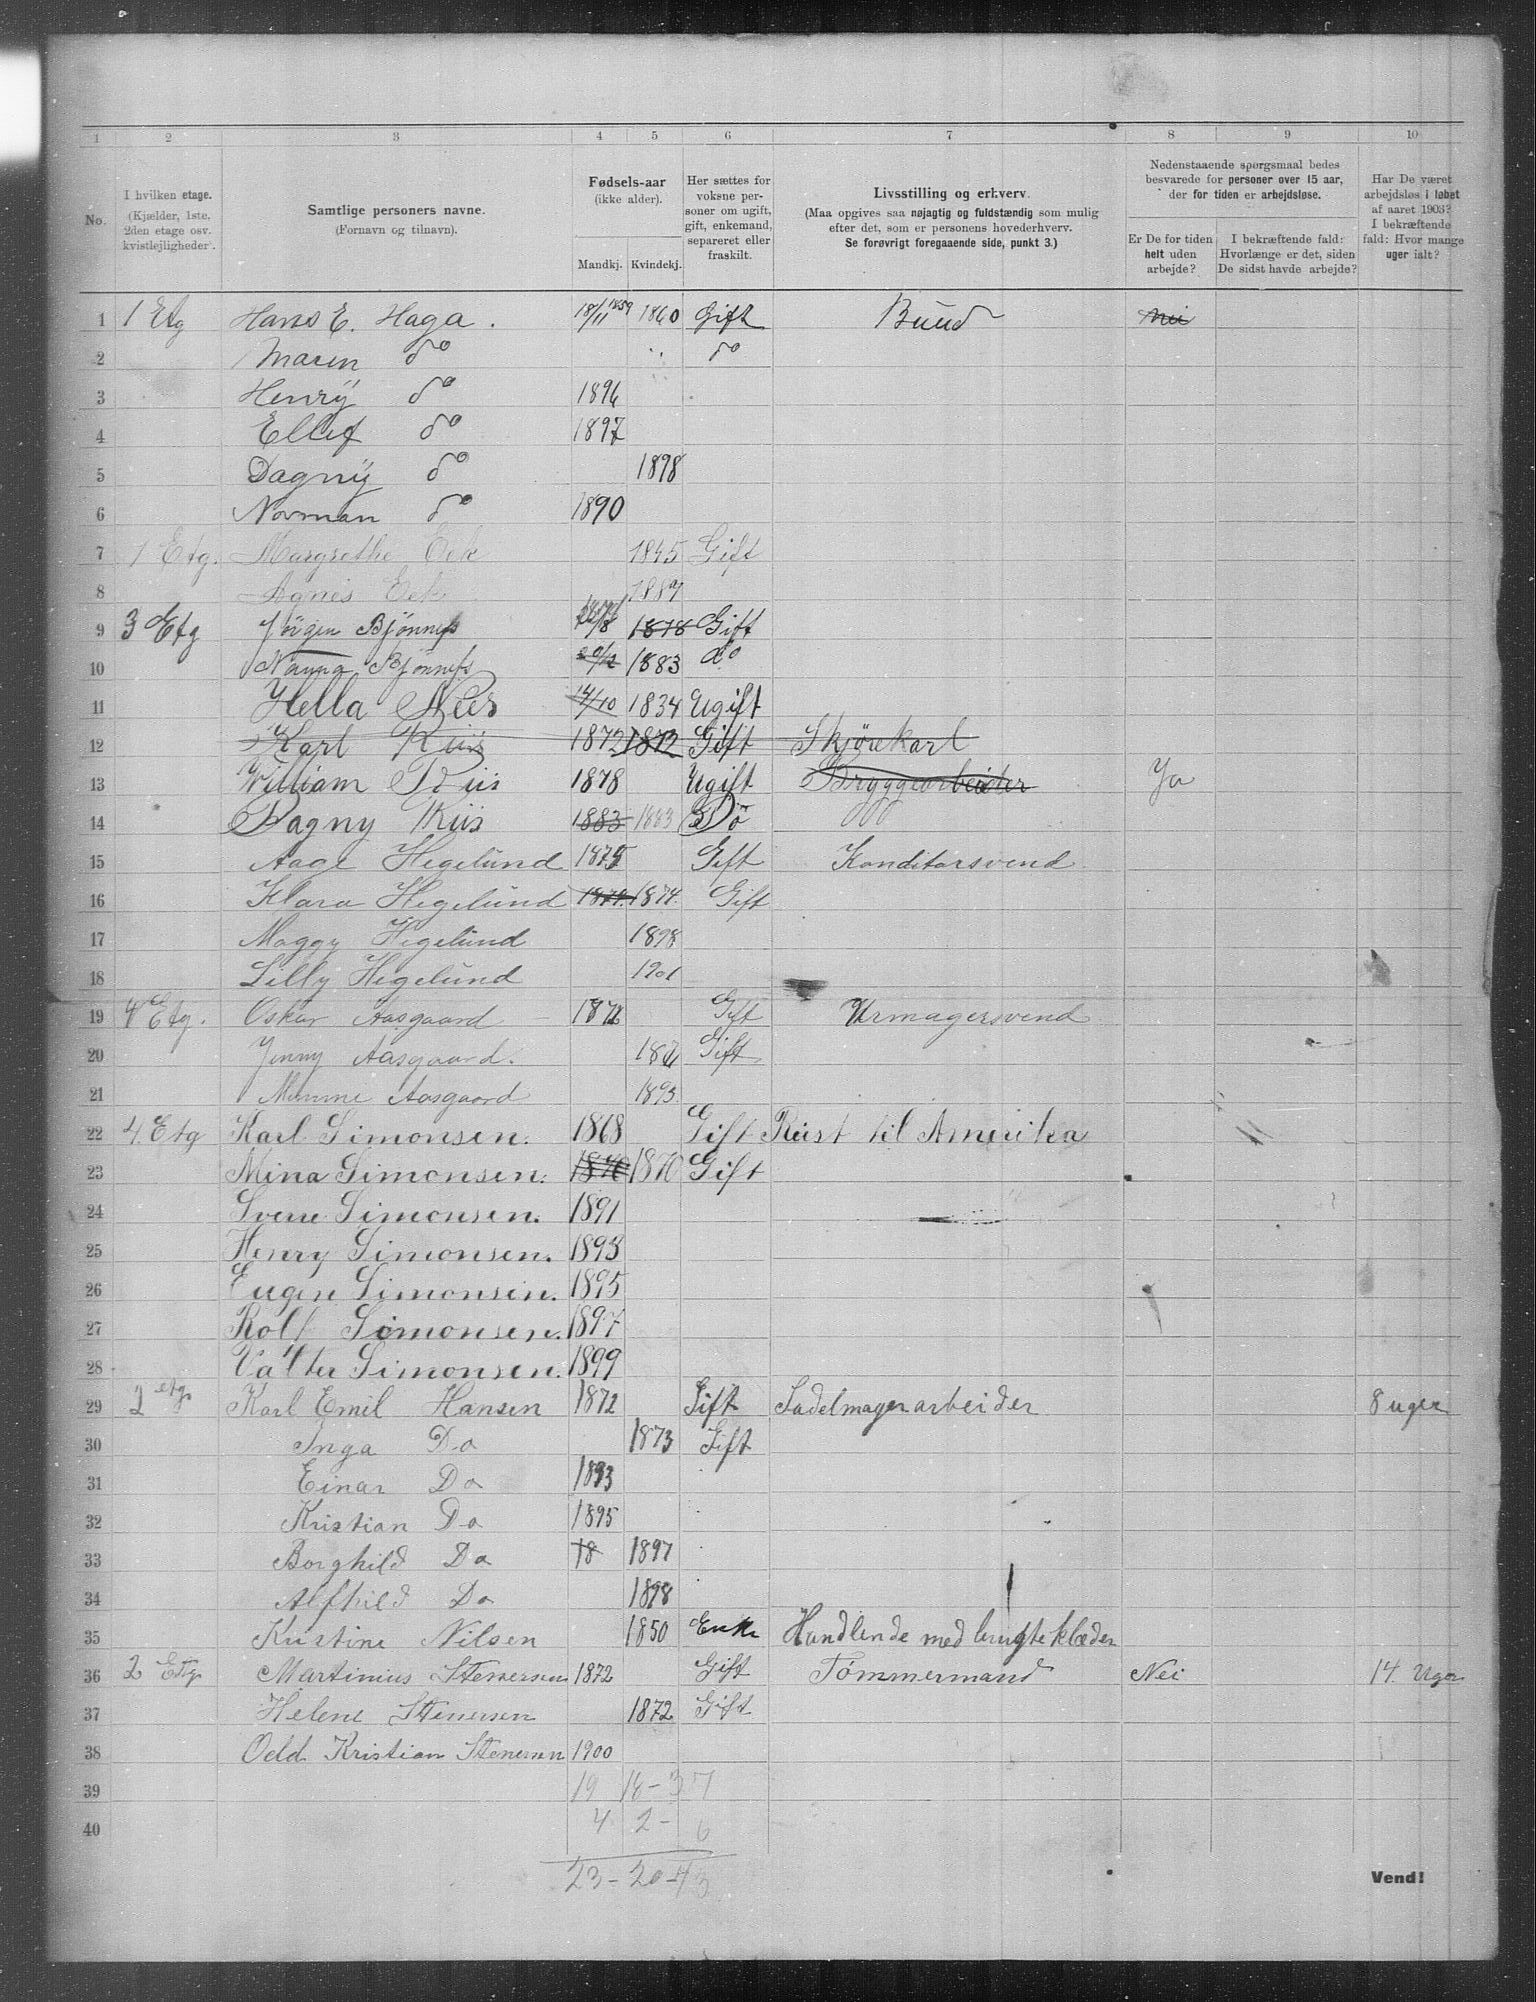 1 2 3 4 5 6 7 8 9 10
No.
I hvilken etage. (Kjælder, 1ste, 2den etage osv. kvistlejligheder).
Samtlige personers navne. (Fornavn og tilnavn).
Fødsels-aar (ikke alder).
Mandkj. Kvindekj.
Her sættes for voksne personer om ugift, gift, enkemand, separeret eller fraskilt.
Livsstilling og erhverv. (Maa opgives saa nøjagtig og fuldstændig som mulig efter det, som er personens hovederhverv. Se forøvrigt foregaaende side, punkt 3.)
Nedenstaaende spørgsmaal bedes besvarede for personer over 15 aar, der for tiden er arbejdsløse.
Er De for tiden helt uden arbejde?
I bekræftende fald: Hvorlænge er det, siden De sidst havde arbejde?
Har De været arbejdsløs i løbet af aaret 1903? I bekræftende fald: Hvor mange uger ialt?
1 1 Etg Hans E. Haga. 18/11 1859 1860 Gift Buud Nei
2 Maren do do
3 Henrÿ do 1896
4 Ellef do 1897
5 Dagnÿ do 1898
6 Norman do 1890
7 1 Etg. Margrethe Eek 1845 Gift
8 Agnes Eek 1887
9 3 Etg Jörgen Bjönness 1878 Gift
10 Nanna Bjönness 20/12 1883 do
11 Hella Néés 14/10 1834 Ugift
12 Karl Riis 1872 1872 Gift Skjörekarl
13 William Riis 1878 Ugift Bryggearbeider Ja
14 Dagny Riis 1883 1883 Do
15 Aage Hegelund 1875 Gift Konditorsvend
16 Klara Hegelund 1874. 1874. Gift
17 Maggy Hegelund 1898
18 Lilly Hegelund 1901
19 4 Etg. Oskar Aasgaard 1872 Gift Urmagersvend
20 Jenny Aasgaard. Gift
21 Aasgaard 1893
22 4 Etg Karl Simonsen. 1868 Gift Reist til Amerika
23 Mina Simonsen. 1870 1870 Gift
24 Sverre Simonsen. 1891
25 Henry Simonsen. 1893
26 Eugen Simonsen. 1895
27 Rolf Simonsen. 1897
28 Valter Simonsen. 1899
29 2 etg. Karl Emil Hansen 1872 Gift Sadelmagerarbeider 8 uger
30 Inga Do 1873 Gift
31 Einar Do 1893
32 Kristian Do 1895
33 Borghild Do 18 1897
34 Alfhild Do 1898
35 Kristine Nilsen 1850 Enke Handlende med brugte klæder
36 2 Etg. Martinius Stenersen 1872 Gift Tömmermand Nei 14 Uger
37 Helene Stenersen 1872 Gift
38 Odd Kristian Stenersen 1900
39 19 18 - 37
40 4 2 - 6
23 - 20 - 43
Vend!